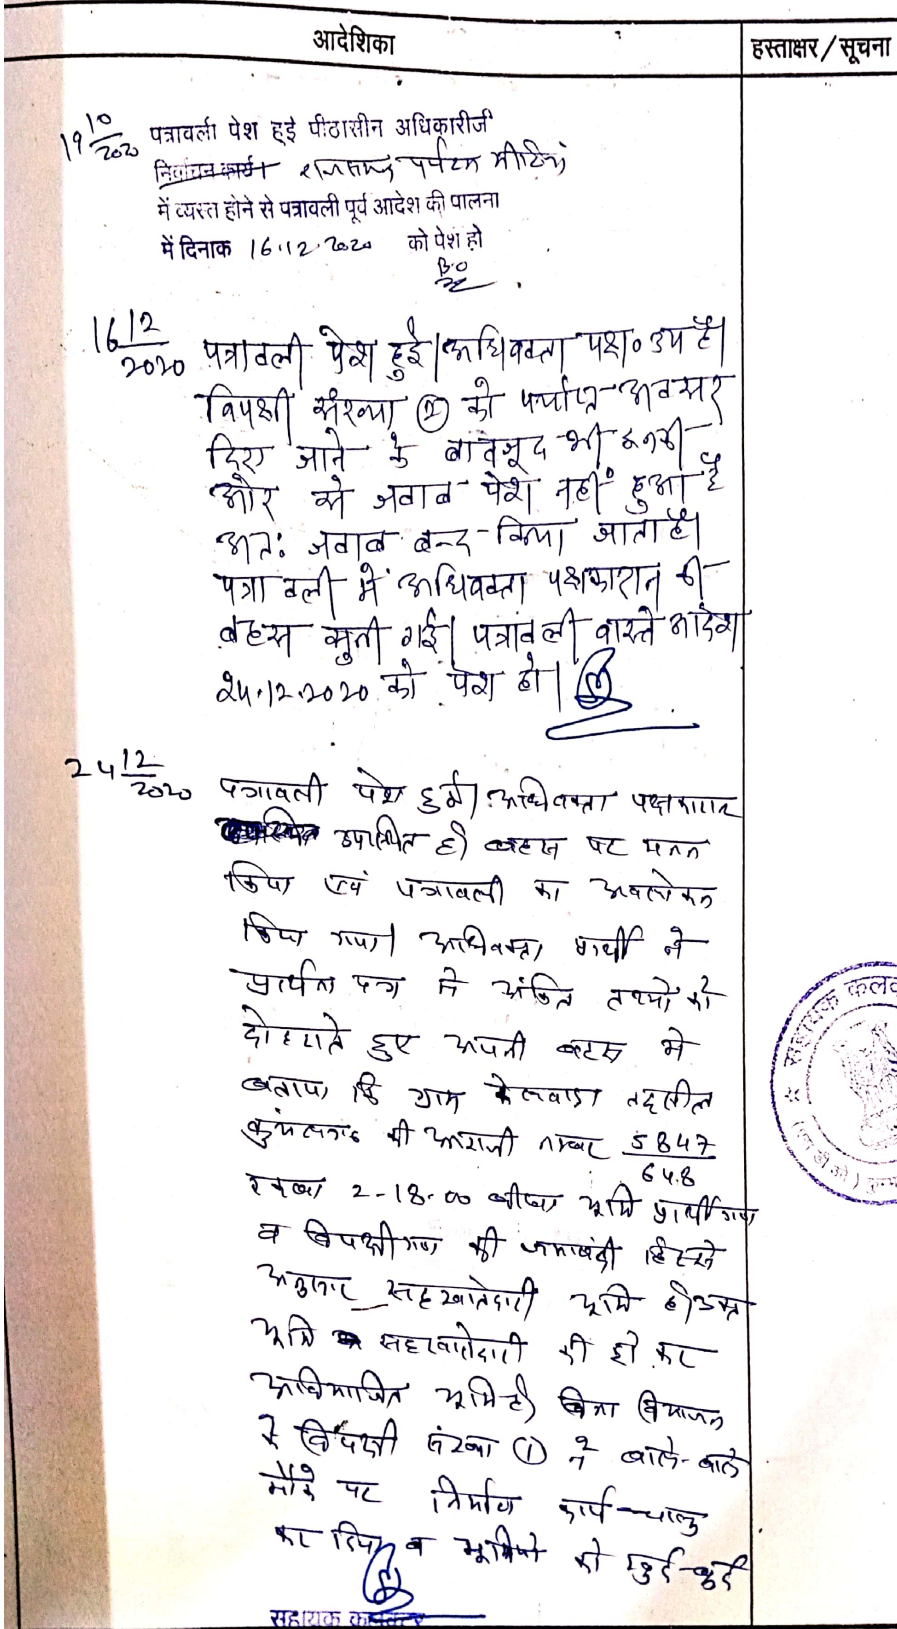 आदेशिका
हस्ताक्षर/सूचना
19 10/2020 पत्रावली पेश हुई पीठासीन अधिकारीजी
निर्वाचन कार्य। राजसमंद पर्यटन मीटिंग
में व्यस्त होने से पत्रावली पूर्व आदेश की पालना
में दिनाक 16.12.2020 को पेश हो
B.O
16 12/2020 पत्रावली पेश हुई। अधिवक्ता पक्ष० उप है।
विपक्षी संख्या ② को पर्याप्त अवसर
दिए जाने के बावजूद भी इनकी
ओर से जवाब पेश नहीं हुआ है
अतः जवाब बन्द किया जाता है।
पत्रावली में अधिवक्ता पक्षकारान की
बहस सुनी गई। पत्रावली वास्ते आदेश
24.12.2020 को पेश हो।
24 12/2020 पत्रावली पेश हुई। अधिवक्ता पक्षकारान
उपस्थित है। बहस पर मनन
किया एवं पत्रावली का अवलोकन
किया गया। अधिवक्ता प्रार्थी ने
प्रार्थना पत्र में अंकित तथ्यों को
दोहराते हुए अपनी बहस में
बताया कि ग्राम केलवाडा तहसील
कुंभलगढ की आराजी नम्बर 5847/648
रकबा 2-18-00 बीघा भूमि प्रार्थीगण
व विपक्षीगण की जमाबंदी हिस्से
अनुसार सहखातेदारी भूमि है। उक्त
भूमि सहखातेदारी की हो कर
अविभाजित भूमि है। बिना विभाजन
के विपक्षी संख्या ① ने बाले-बाले
मौके पर निर्माण कार्य चालु
कर दिया व भूमि को खुर्द-बुर्द
सहायक कलक्टर
सहायक कलक